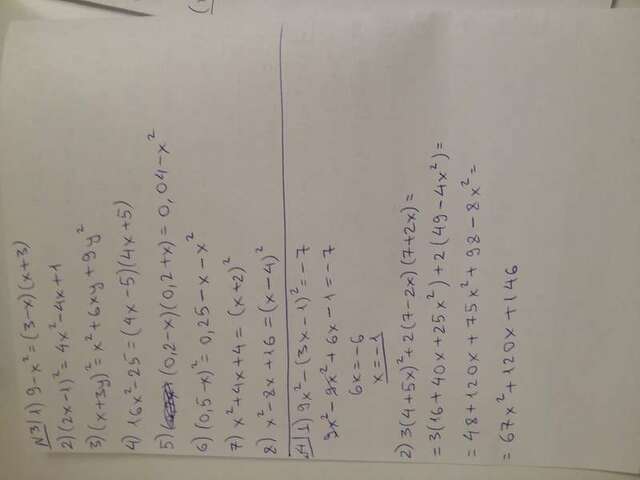 N3 1) 9-x²=(3-x)(x+3)
2) (2x-1)²=4x²-4x+1
3) (x+3y)²=x²+6xy+9y²
4) 16x²-25=(4x-5)(4x+5)
5) (0,2-x)(0,2+x)=0,04-x²
6) (0,5-x)²=0,25-x-x²
7) x²+4x+4=(x+2)²
8) x²-8x+16=(x-4)²
N1 1) 9x²-(3x-1)²=-7
9x²-9x²+6x-1=-7
6x=-6
x=-1
2) 3(4+5x)²+2(7-2x)(7+2x)=
=3(16+40x+25x²)+2(49-4x²)=
=48+120x+75x²+98-8x²=
=67x²+120x+146